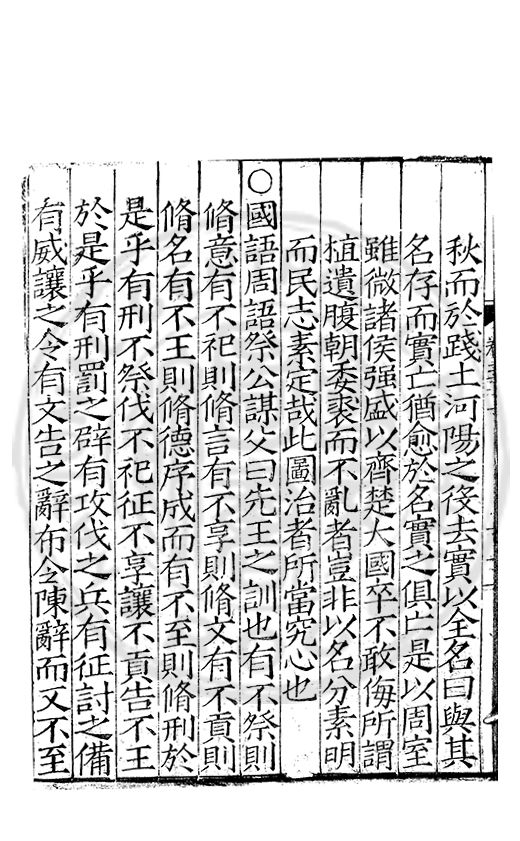 秋而於踐土河陽之役去實以全名曰與其
名存而實亡猶愈於名實之俱亡是以周室
雖微諸侯强盛以齊楚大國卒不敢侮所謂
植遺腹朝委裘而不亂者豈非以名分素明
而民志素定哉此圖治者所當究心也
○國語周語祭公謀父曰先王之訓也有不祭則
脩意有不祀則脩言有不享則脩文有不貢則
脩名有不王則脩德序成而有不至則脩刑於
是乎有刑不祭伐不祀征不享讓不貢告不王
於是乎有刑罰之辟有攻伐之兵有征討之備
有威讓之令有文告之辭布令陳辭而又不至